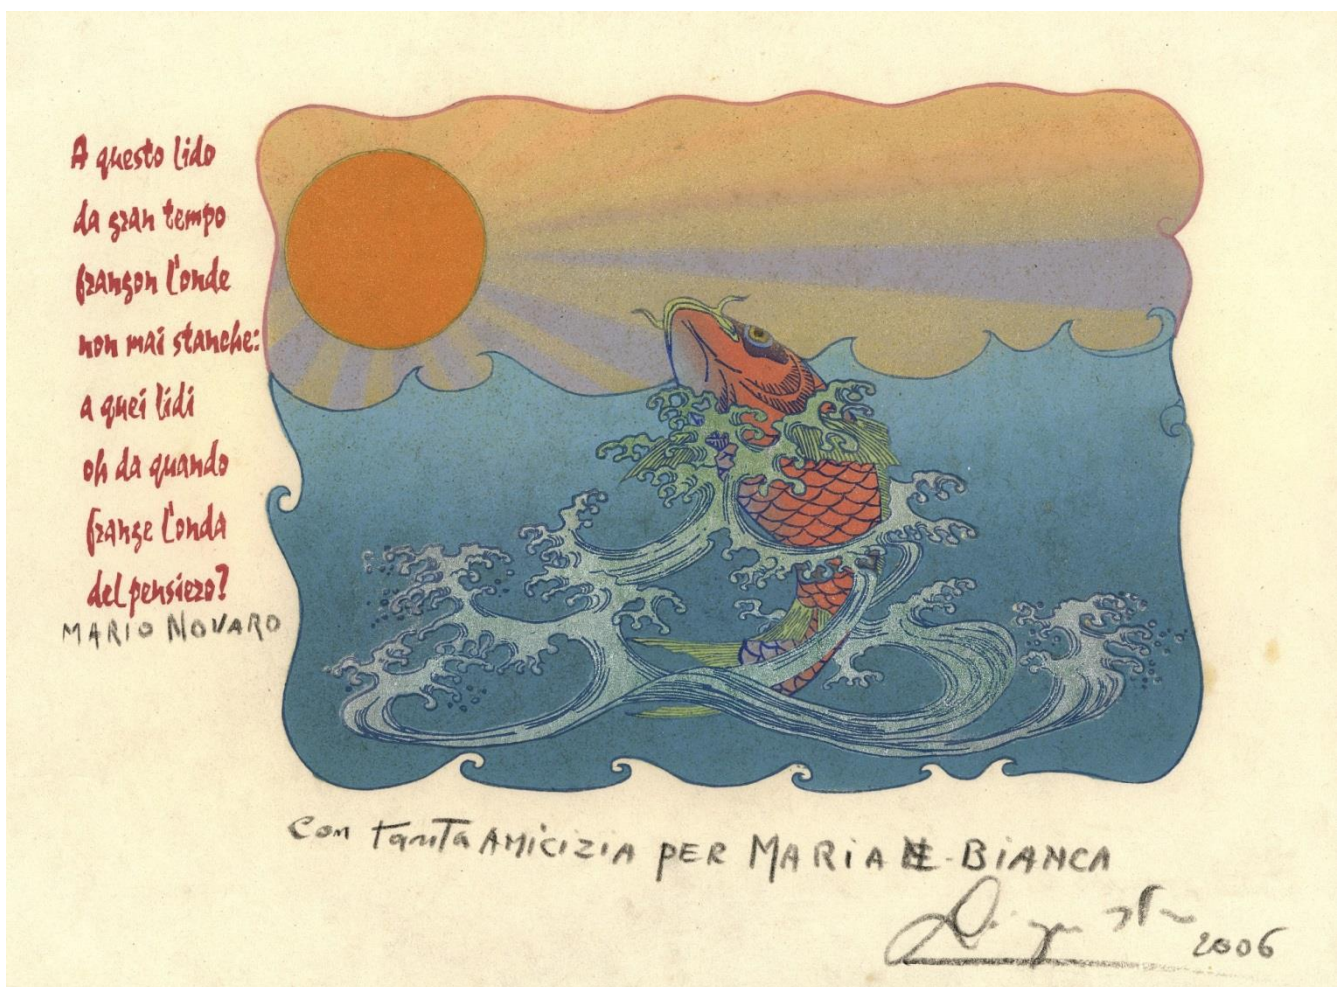 A questo lido
da gran tempo
frangon l'onde
non mai stanche:
a quei lidi
oh da quando
frange l'onda
del pensiero?
MARIO NOVARO
con tanta AMICIZIA PER MARIA - BIANCA
2006